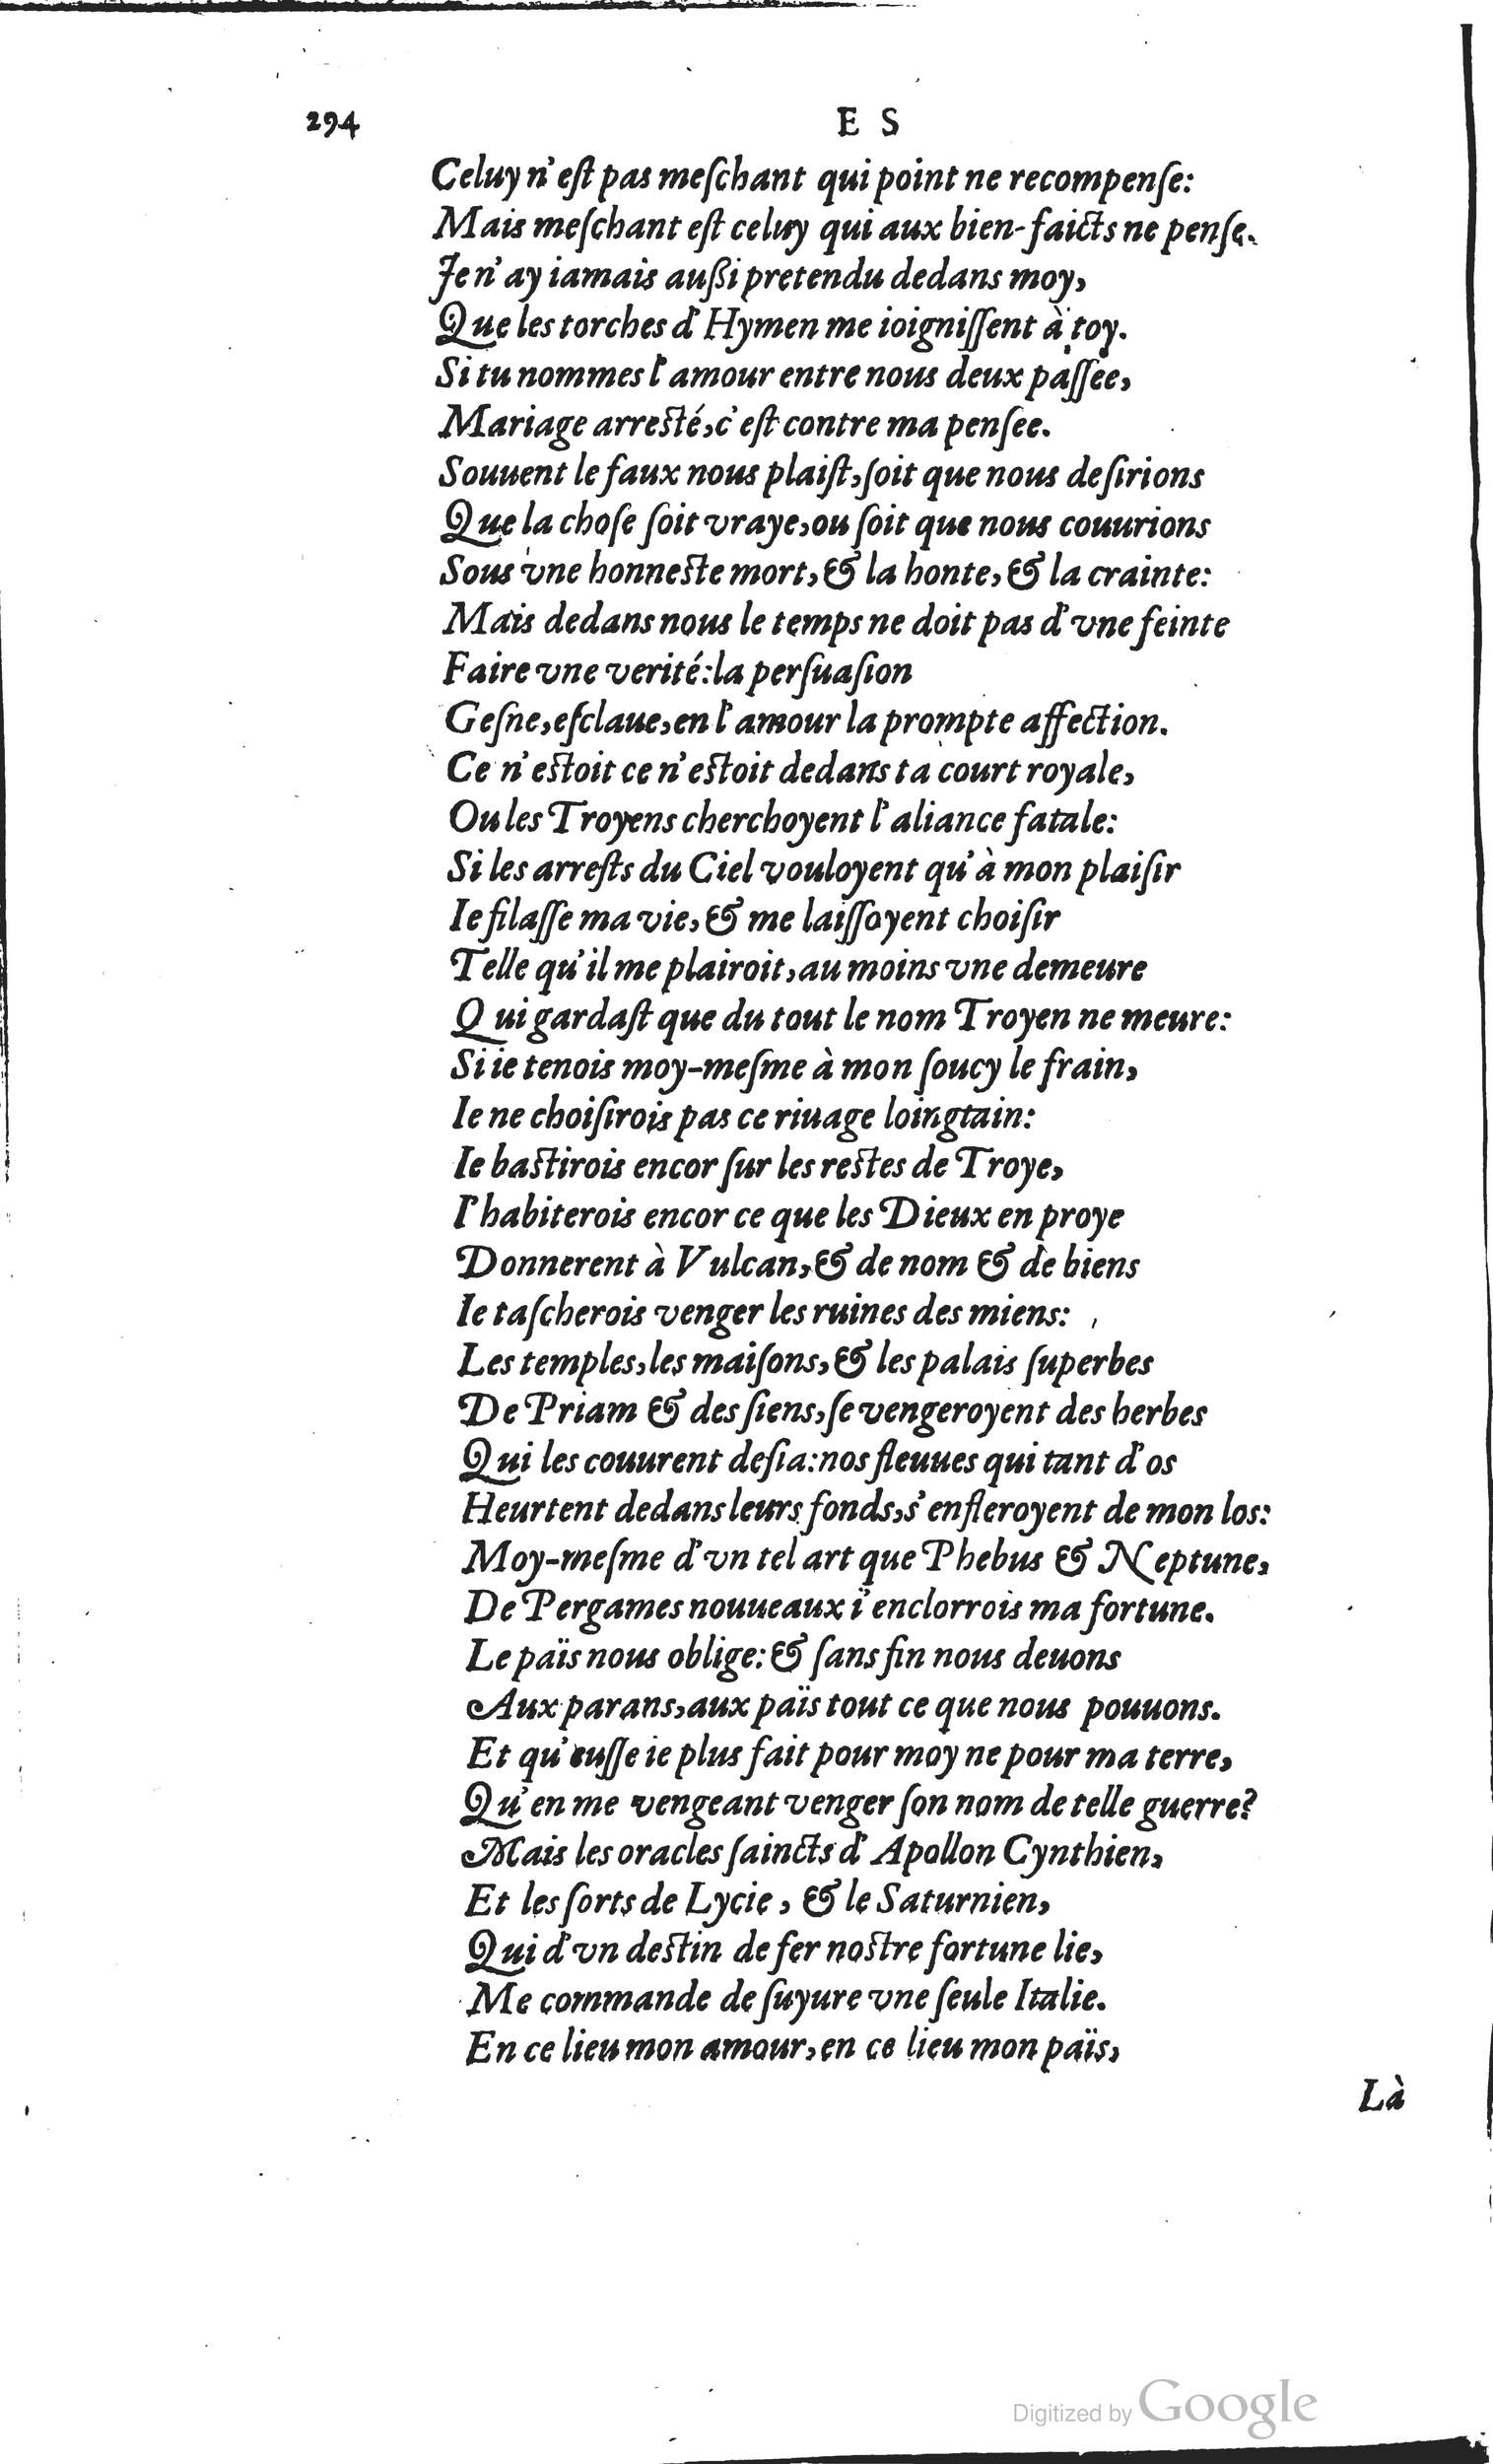 294
E S
Celuy n'eſt pas meſchant qui point ne recompenſe:
Mais meſchant eſt celuy qui aux bien-faicts ne penſe.
Je n'ay iamais außi pretendu dedans moy,
Que les torches d'Hymen me ioigniſſent à toy.
Si tu nommes l'amour entre nous deux paſſee,
Mariage arreſté, c'eſt contre ma penſee.
Souuent le faux nous plaiſt, ſoit que nous deſirions
Que la choſe ſoit vraye, ou ſoit que nous couurions
Sous vne honneſte mort, & la honte, & la crainte:
Mais dedans nous le temps ne doit pas d'vne feinte
Faire vne verité: la perſuaſion
Geſne, eſclaue, en l'amour la prompte affection.
Ce n'eſtoit ce n'eſtoit dedans ta court royale,
Ou les Troyens cherchoyent l'aliance fatale:
Si les arreſts du Ciel vouloyent qu'à mon plaiſir
Ie filaſſe ma vie, & me laiſſoyent choiſir
Telle qu'il me plairoit, au moins vne demeure
Qui gardaſt que du tout le nom Troyen ne meure:
Si ie tenois moy-meſme à mon ſoucy le frain,
Ie ne choiſirois pas ce riuage loingtain:
Ie baſtirois encor ſur les reſtes de Troye,
I'habiterois encor ce que les Dieux en proye
Donnerent à Vulcan, & de nom & de biens
Ie taſcherois venger les ruines des miens:
Les temples, les maiſons, & les palais ſuperbes
De Priam & des ſiens, ſe vengeroyent des herbes
Qui les couurent deſia: nos fleuues qui tant d'os
Heurtent dedans leurs fonds, s'enfleroyent de mon los:
Moy-meſme d'vn tel art que Phebus & Neptune,
De Pergames nouueaux i'enclorrois ma fortune.
Le païs nous oblige: & ſans fin nous deuons
Aux parans, aux païs tout ce que nous pouuons.
Et qu'euſſe ie plus fait pour moy ne pour ma terre,
Qu'en me vengeant venger ſon nom de telle guerre?
Mais les oracles ſaincts d'Apollon Cynthien,
Et les ſorts de Lycie, & le Saturnien,
Qui d'vn deſtin de fer noſtre fortune lie,
Me commande de ſuyure vne ſeule Italie.
En ce lieu mon amour, en ce lieu mon païs,
Là
Digitized by Google